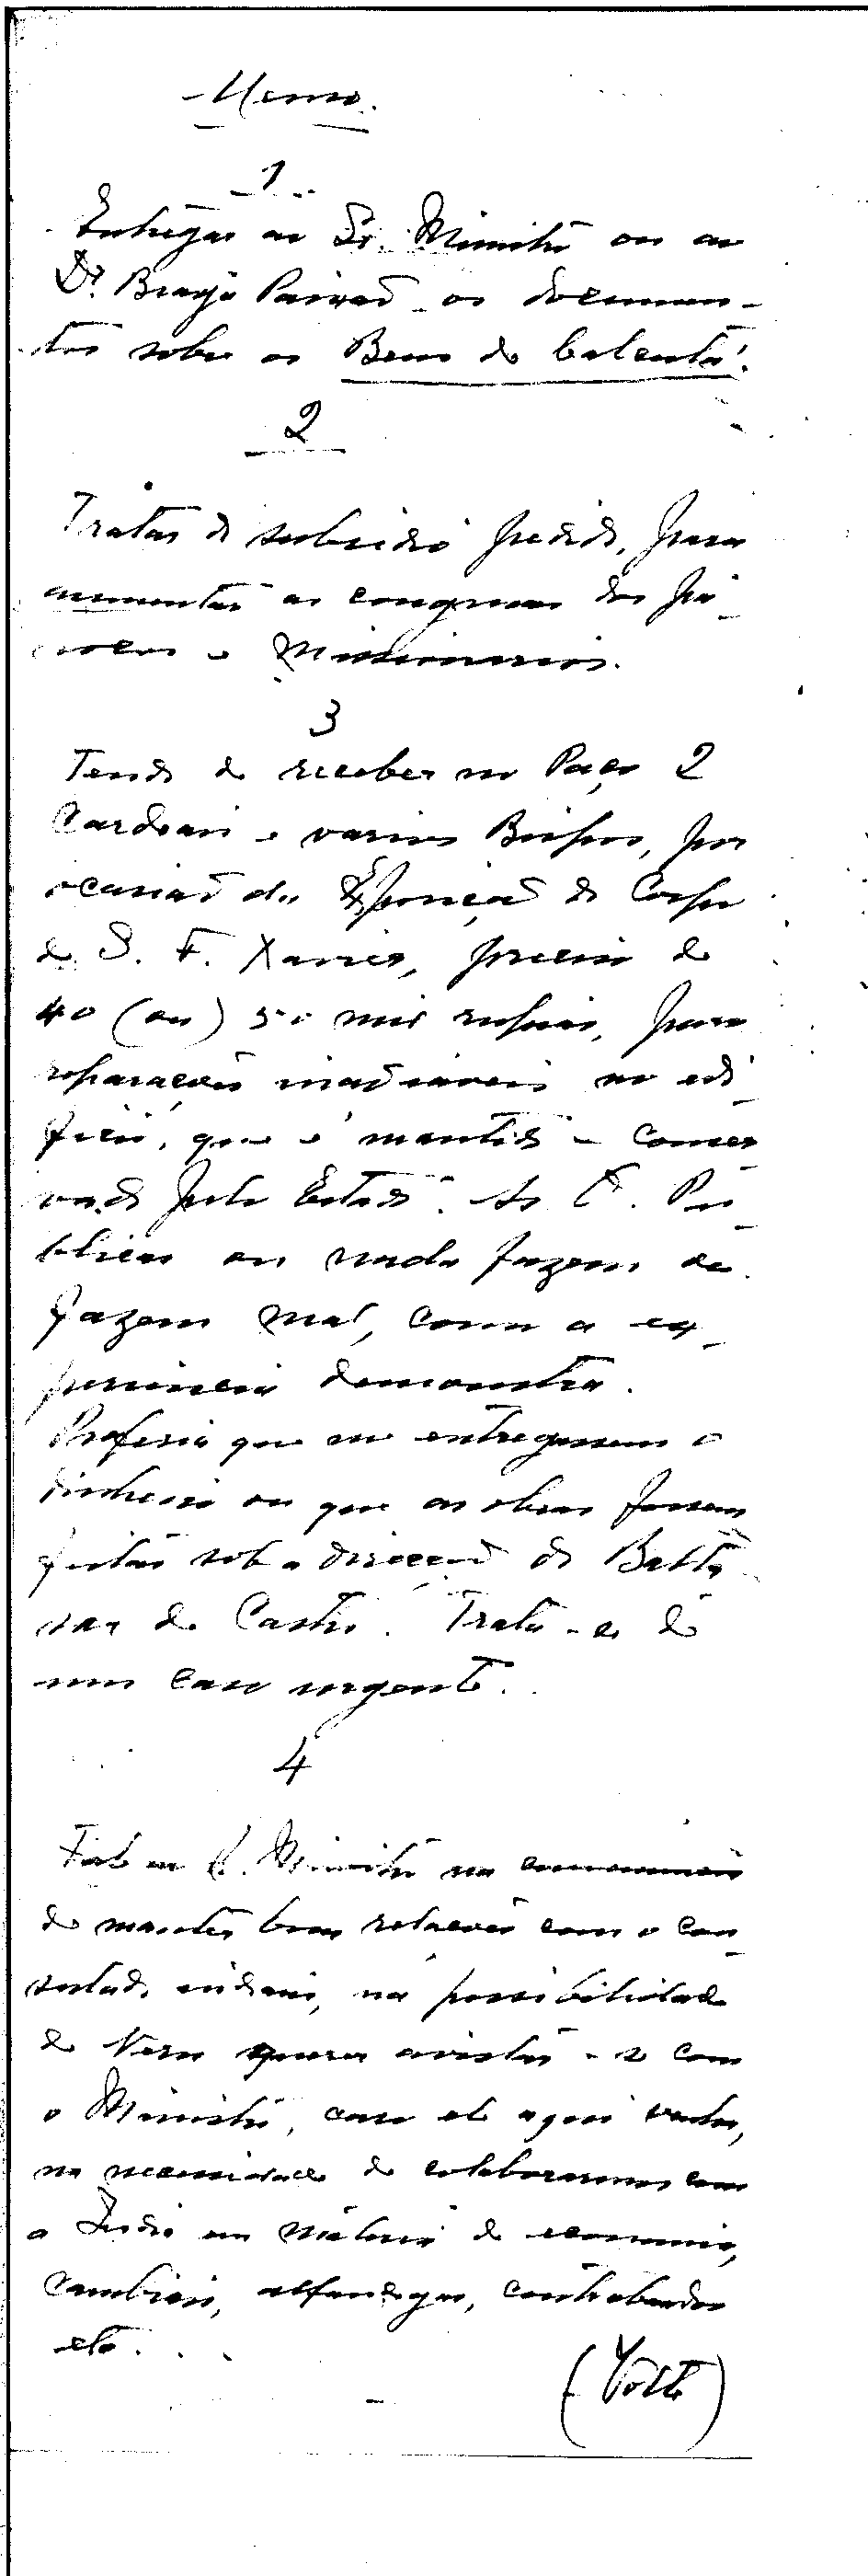 Memo.
1
Entregar ao Sr. Ministro ou ao
Dr. Braga Paixão os documen-
tos sobre os Bens de Calcutá.
2
Tratar do subsidio pedido, para
aumentar as congruas dos pá-
rocos e Missionarios.
3
Tendo de receber no Paço 2
Cardeais e varios Bispos, por
ocasião da Exposição do Corpo
de S. F. Xavier, preciso de
40 (ou) 50 mil rupias, para
reparações inadiaveis no edi-
ficio, que é mantido e conser
vado pelo Estado. As O. Pú-
blicas ou nada fazem ou
fazem mal, como a ex-
periencia demonstra.
Preferia que me entregassem o
dinheiro ou que as obras fossem
feitas sob a direcção do Balta
sar de Castro. Trata-se de
um caso urgente.
4
Falar ao S. Ministro na conveniencia
de manter boas relações com o Con-
sulado indiano, na possibilidade
de Neru querer avistar-se com
o Ministro, caso ele aqui venha,
na necessidade de colaborarmos com
a India em materia de economia,
Cambios, alfandegas, contrabandos
etc...
(Volte)